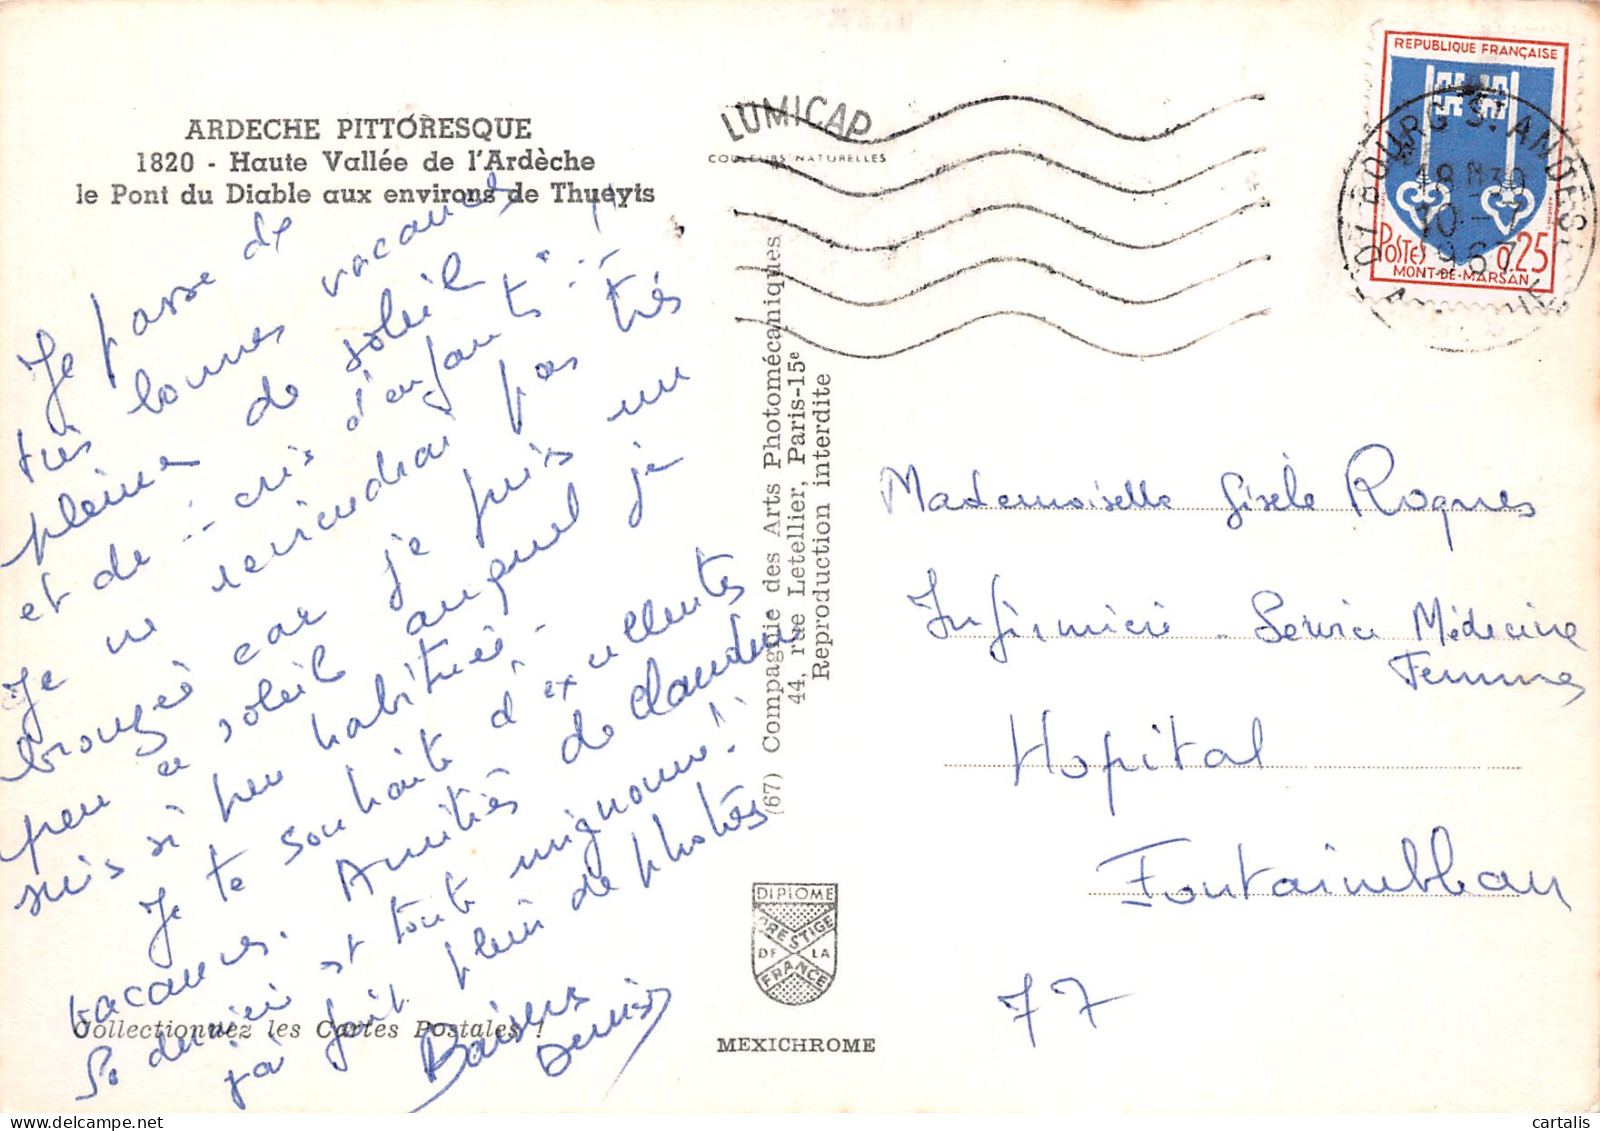 ARDECHE PITTORESQUE
1820 - Haute Vallée de l'Ardèche
le Pont du Diable aux environs de Thueyts
Je passe de
très bonnes vacances
pleines de soleil !!
et de ... cris d'enfants" ...
Je ne reviendrai pas très
bronzée car je fuis un
peu ce soleil auquel je
suis si peu habituée.
Je te souhaite d'excellentes
vacances. Amitiés de Claudine
est toute mignonne!
j'ai fait plein de photos
Baisers
Denise
Collectionnez les Cartes Postales !
LUMICAP
COULEURS NATURELLES
(67) Compagnie des Arts Photomécaniques
44, rue Letellier, Paris-15e
Reproduction interdite
DIPLOME
PRESTIGE
DE LA
FRANCE
MEXICHROME
REPUBLIQUE FRANÇAISE
POSTES 0,25
MONT-DE-MARSAN
07 BOURG ST ANDEOL
18 H30
10-7
1967
Mademoiselle Gisèle Roques
Infirmière - Service Médecine
Femmes
Hopital
Fontainebleau
77
cartalis